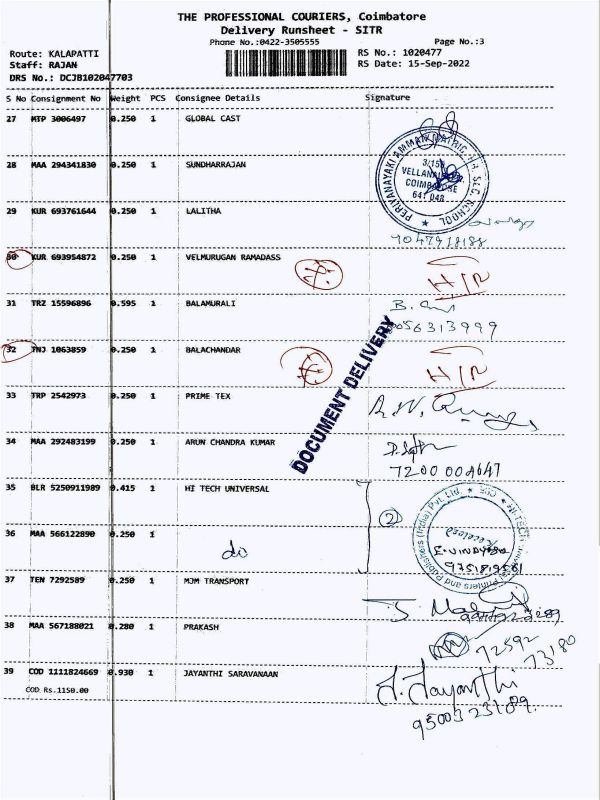 THE PROFESSIONAL COURIERS, Coimbatore
Delivery Runsheet - SITR
Phone No.:0422-3505555 Page No.:3
Route: KALAPATTI RS No.: 1020477
Staff: RAJAN RS Date: 15-Sep-2022
DRS No.: DCJB102047703
S No Consignment No Weight PCS Consignee Details Signature
27 MTP 3006497 0.250 1 GLOBAL CAST
PERIYANAYAKI AMMAN MATRIC. HR. SEC. SCHOOL
3/155
COIMBATORE
641 048
28 MAA 294341830 0.250 1 SUNDHARRAJAN
29 KUR 693761644 0.250 1 LALITHA
30 KUR 693954872 0.250 1 VELMURUGAN RAMADASS
31 TRZ 15596896 0.595 1 BALAMURALI
32 TNJ 1063859 0.250 1 BALACHANDAR
DOCUMENT DELIVERY
33 TRP 2542973 0.250 1 PRIME TEX
34 MAA 292483199 0.250 1 ARUN CHANDRA KUMAR
7200 004647
35 BLR 5250911989 0.415 1 HI TECH UNIVERSAL
2
36 MAA 566122890 0.250 1 do
Printers and Publishers (India) Pvt. Ltd.
Received
37 TEN 7292589 0.250 1 MJM TRANSPORT
38 MAA 567188021 0.280 1 PRAKASH
72592
73180
39 COD 1111824669 0.930 1 JAYANTHI SARAVANAAN
COD Rs.1150.00
J. Jayanthi
9500323189.